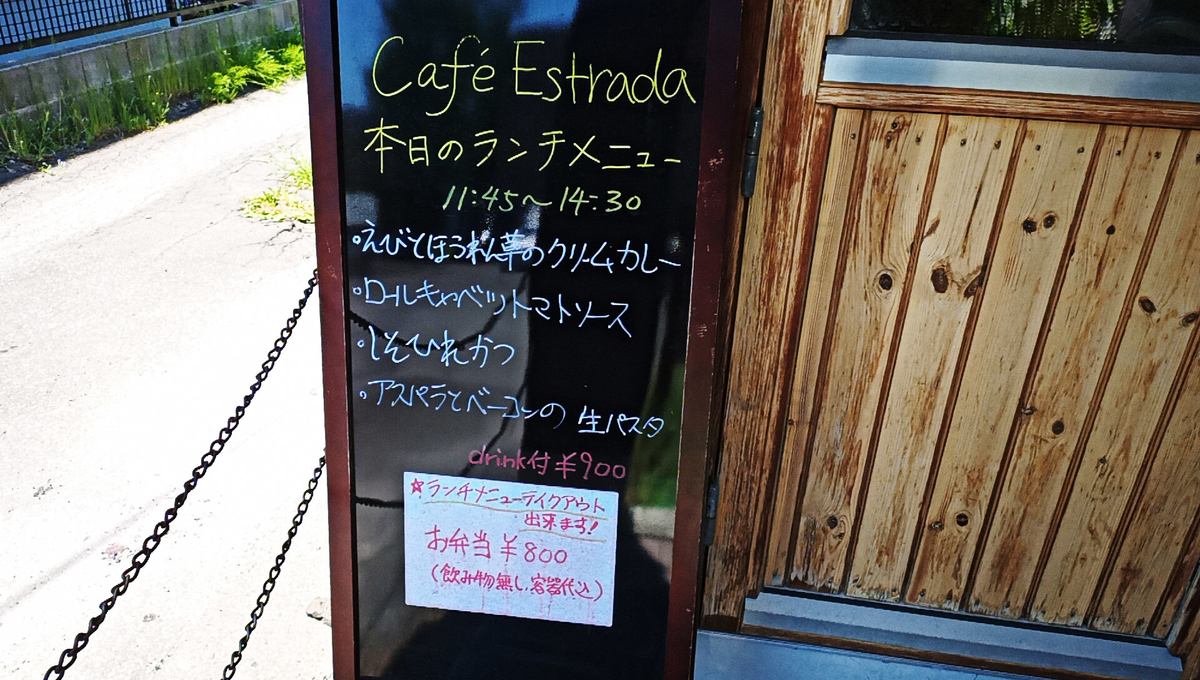 Café Estrada
本日のランチメニュー
11:45～14:30
・えびとほうれん草のクリームカレー
・ロールキャベツトマトソース
・しそひれかつ
・アスパラとベーコンの 生パスタ
drink付 ¥900
☆ランチメニューテイクアウト
出来ます!
お弁当 ¥800
(飲み物無し、容器代込)